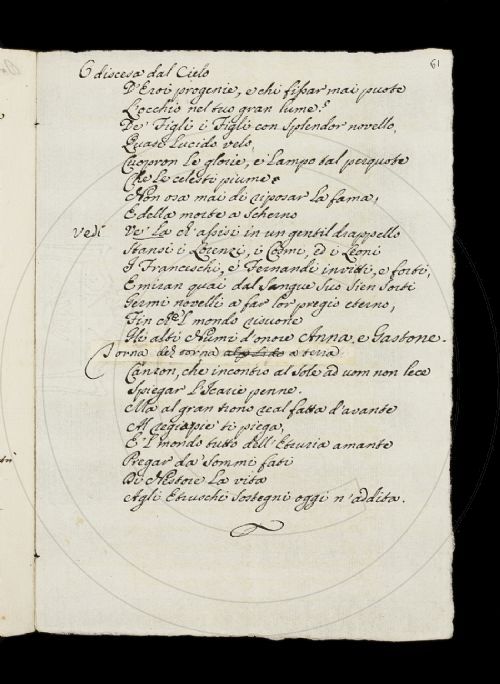 61
O discesa dal Cielo
D'Eroi progenie, e chi fissar mai puote
L'occhio nel tuo gran lume?
De' Figli i Figli con splendor novello,
Quasi Lucido velo,
Cuopron Le glorie, e Lampo tal percuote
Che Le celesti piume
Non osa mai di riposar La fama,
E della morte a scherno
Vedi Ve' La ch'assisi in un gentil drappello
Stansi i Lorenzi, i Cosmi, ed i Leoni
I Franceschi, e Fernandi invitti, e forti,
E miran quai dal Sangue Suo Sien Sorti
Germi novelli a far lor pregio eterno,
Fin che'l mondo risuone
Gli alti Numi d'onore Anna, e Gastone.
Torna deh torna a terra
Canzon, che incontro al Sole ad uom non lece
Spiegar L'Icarie penne.
Ma al gran trono real fatta d'avante
Al regio piè ti piega,
E'l mondo tutto dell'Etruria amante
Pregar da' Sommi fati
Di Nestore La vita
Agli Etruschi Sostegni oggi n'addita.